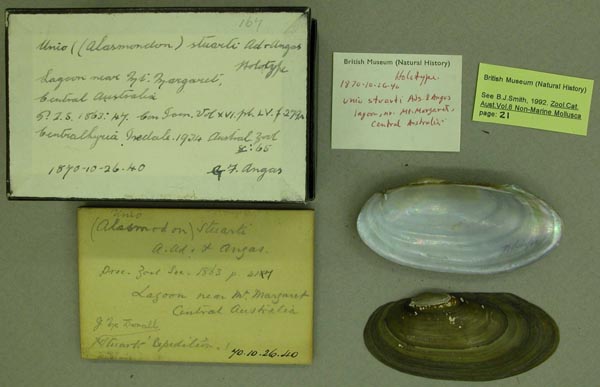 167
Unio ((Alasmondon) stuarti Ad & Angas
Holotype
Lagoon near Mt. Margaret,
Central Australia
P.Z.S. 1863:
Centralhyria Iredale. 1934 Austral Zool
8: 65
1870-10-26-40 G F. Angas
British Museum (Natural History)
Holotype.
1870-10-26-40
Unio stuarti Ads. & Angas
lagoon, nr. Mt. Margaret,
Central Australia
British Museum (Natural History)
See B.J.Smith, 1992. Zool.Cat.
Aust.Vol.8 Non-Marine Mollusca
page: 21
Unio
(Alasmodon) Stuarti
A. Ad. & Angas.
Proc. Zool Soc. 1863 p.
Lagoon near Mt. Margaret
Central Australia
Stuarts Expedition.
70.10.26.40